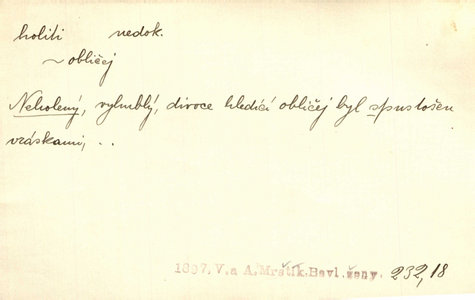 holiti nedok.
~ obličej
Neholený, vyhublý, divoce hledící obličej byl spustošen
vráskami, . .
1897. V. a A. Mrštík. Bavl. ženy. 232,18